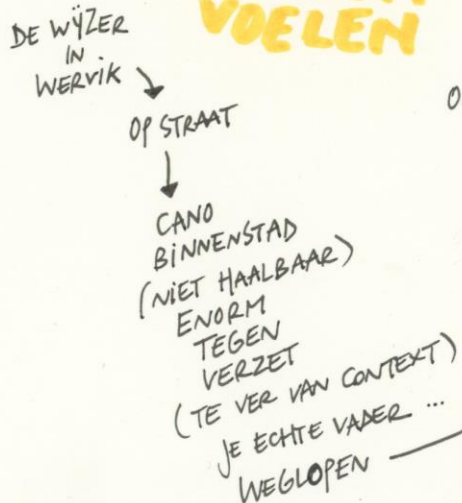 VOELEN
DE WŸZER
IN
WERVIK
OP STRAAT
CANO
BINNENSTAD
(NIET HAALBAAR)
ENORM
TEGEN
VERZET
(TE VER VAN CONTEXT)
JE ECHTE VADER ...
WEGLOPEN